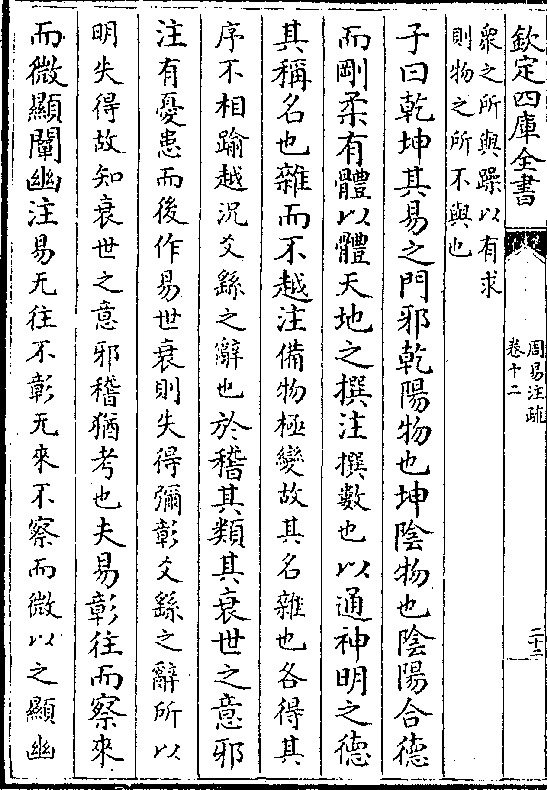 欽定四庫全書
周易注疏
卷十二
二十二
衆之所與躁以有求
則物之所不與也
子曰乾坤其易之門邪乾陽物也坤陰物也陰陽合德
而剛柔有體以體天地之撰注撰數也以通神明之德
其稱名也雜而不越注備物極變故其名雜也各得其
序不相踰越况爻繇之辭也於稽其類其衰世之意邪
注有憂患而後作易世衰則失得彌彰爻繇之辭所以
明失得故知衰世之意邪稽猶考也夫易彰往而察來
而微顯闡幽注易无往不彰无來不察而微以之顯幽